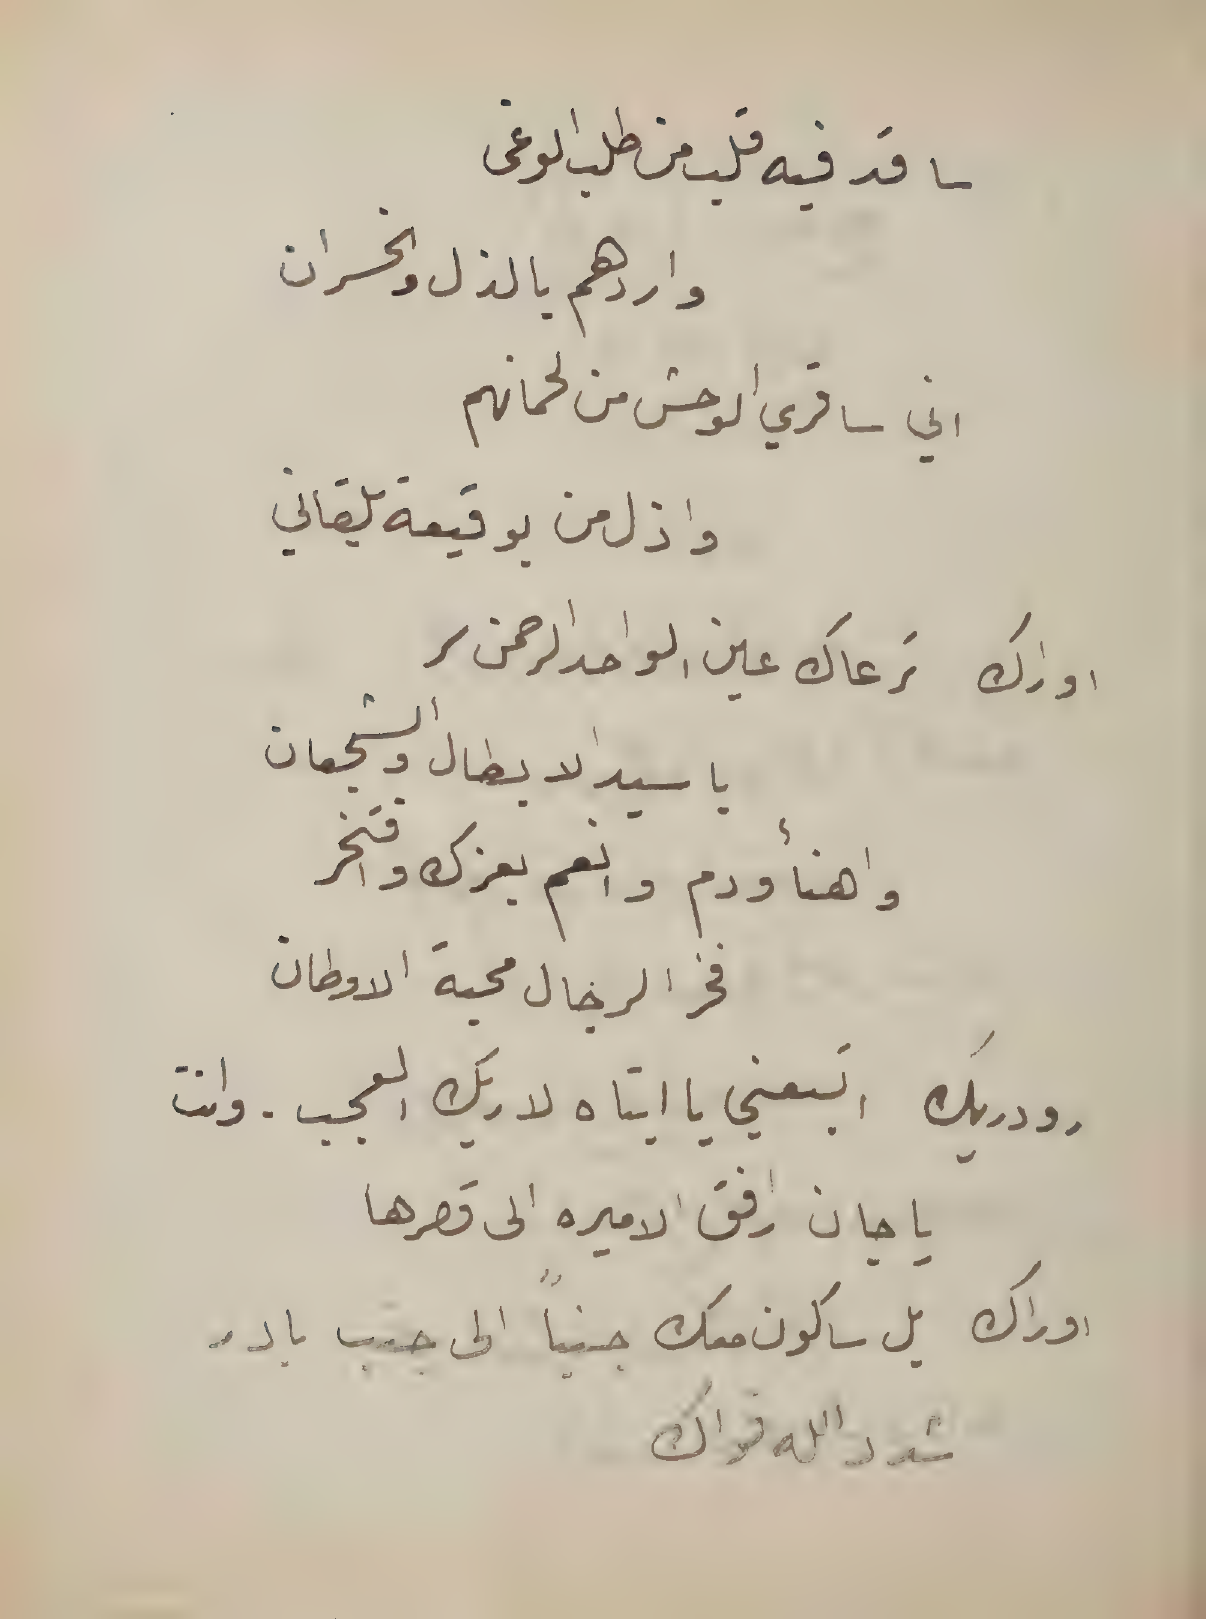 ساقد فيه قلب من طلب الوغى
واردهم بالذل والخسران
اني ساقري الوحش من لحمانهم
واذل من بوقيعة يلقاني
اوراك ترعاك عين الواحد الرحمن
يا سيد الابطال والشجعان
واهنأ ودم وانعم بعزك وافتخر
فخر الرجال محبة الاوطان
رودريك اتبعني يا ابتاه لاريك العجب - وانت
يا جان رافق الاميره الى قصرها
اوراك بل ساكون معك جنباً الى جنب بادر
شدد الله قواك